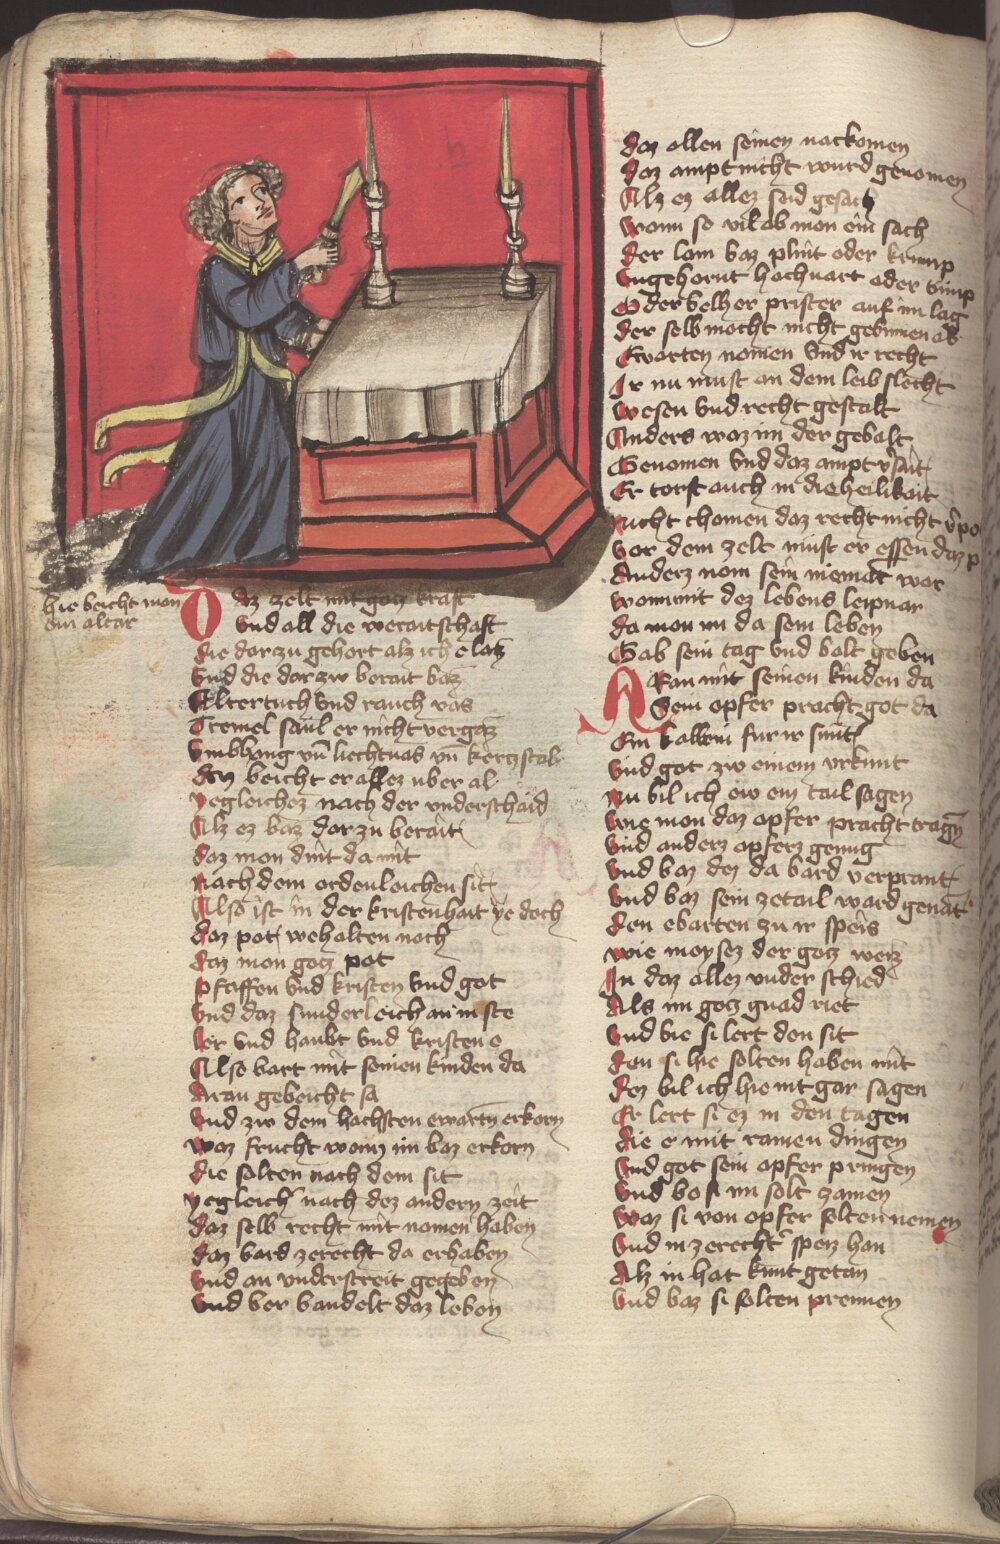 hie beicht mon
ein altar
Daz zelt mit gotz kraft
Vnd all die weraitschaft
die dar zu gehort alz ich e laz
Vnd die dar zw berait baz
Altertuch vnd rauch vas
Tremel saül er nicht vergaz
Vmbhang vn̄ liechtuas vn̄ kerczstal
daz beicht er allez vber al
yegleichez nach der vnderschaid
Alz ez baz dar zu berait
daz mon dint da mit
Nach dem ordenleichen sit
Also ist in der kristenhait ye doch
daz pot wehalten noch
daz mon gotz pot
Pfaffen vnd kristen vnd got
Vnd daz sunderleich an in ste
Ler vnd haubt vnd kristen e
Also bart mit seinen kinden da
Aran gebeicht sa
Vnd zw dem hachsten ewartn erkorn
Waz frucht wonn im baz erkorn
die solten nach dem sit
yegleich nach dez andern zeit
daz selb recht mit nomen haben
daz bard zerecht da erhaben
Vnd an vnderstreit gegeben
Vnd ver bandelt daz leben
daz allen seinen nackomen
daz ampt nicht wurd genomen
Alz ez allez seid gesach
Wann so vil ob mon ein sach
der lam baz plint oder krump
Vngehornt hochuart oder tump
Oder belher prister auf im lag
der selb mocht nicht gebinnen ab
Ewarten nomen vnd ir recht
Er nu must an dem leib slecht
Wesen vnd recht gestalt
Anders waz im der gebalt
Genomen vnd daz ampt v̄sait
Er torst auch in die heilikait
nicht chomen daz recht nicht
Vor dem zelt must er essen daz
Anderz nom sein niemat war
Womimit dez lebens leipnar
da mon im da sein leben
Gab sein tag vnd balt geben
ARan mit seinen kinden da
Sein opfer pracht got da
Ein kalbein fur ir sunt
Vnd got zw einem vrkunt
Nu bil ich ew ein tail sagen
Wie mon daz opfer pracht tragn̄
Vnd anderz opferz genug
Vnd baz dez da bard verprant
Vnd baz sein zetail ward genāt
den ebarten zu ir speis
Wie moysez der gotz weiz
In daz allez vnder schied
Als im gotz gnad riet
Vnd bie si lert den sit
den si hie solten haben mit
dez bil ich hie nit gar sagen
Er lert si ez in den tagen
die e mit ramen dingen
Vnd got sein opfer pringen
Vnd bo si im solt zamen
Waz si von opfer solten nemen
Vnd in zerecht speiz han
Alz in hat kunt getan
Vnd baz si solten prennen